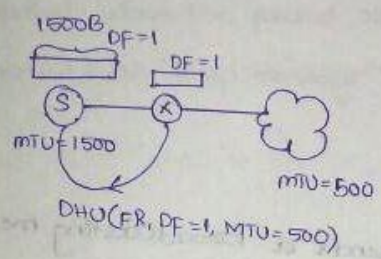 1500B
DF=1
DF=1
S
X
MTU=1500
MTU=500
DHU(FR, DF=1, MTU=500)